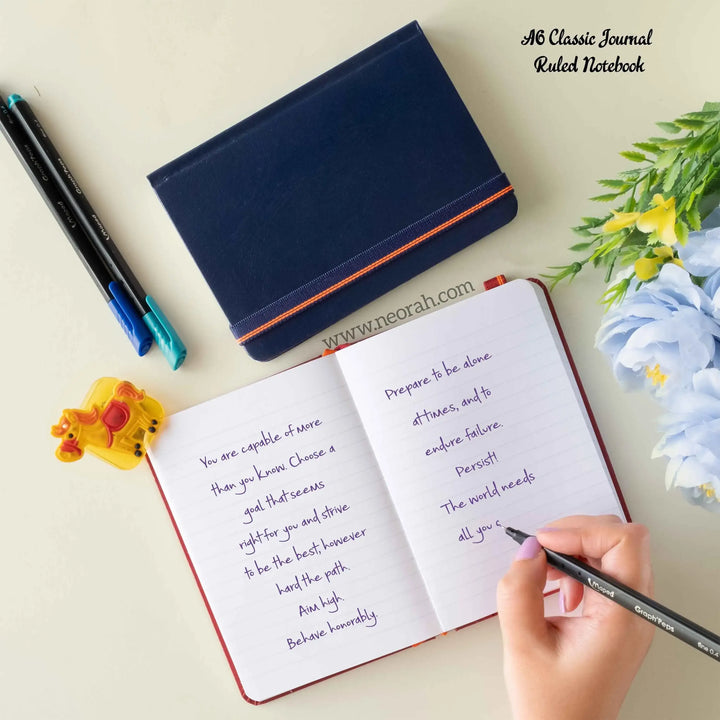 A6 Classic Journal
Ruled Notebook
www.neorah.com
You are capable of more
than you know. Choose a
goal that seems
right for you and strive
to be the best, however
hard the path.
Aim high.
Behave honorably.
Prepare to be alone
at times, and to
endure failure.
Persist!
The world needs
all you c
Maped
Graph'Peps
fine 0.4